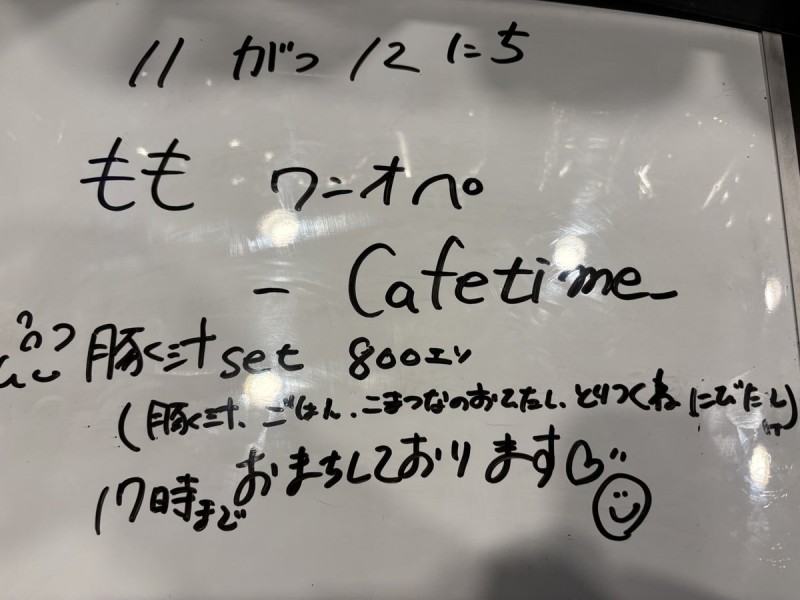 11 がつ 12 にち
もも ワンオペ
- Cafetime -
豚汁set 800エン
(豚汁、ごはん、こまつなのおひたし、とりつくね、にびたし)
17時まで おまちしております♡